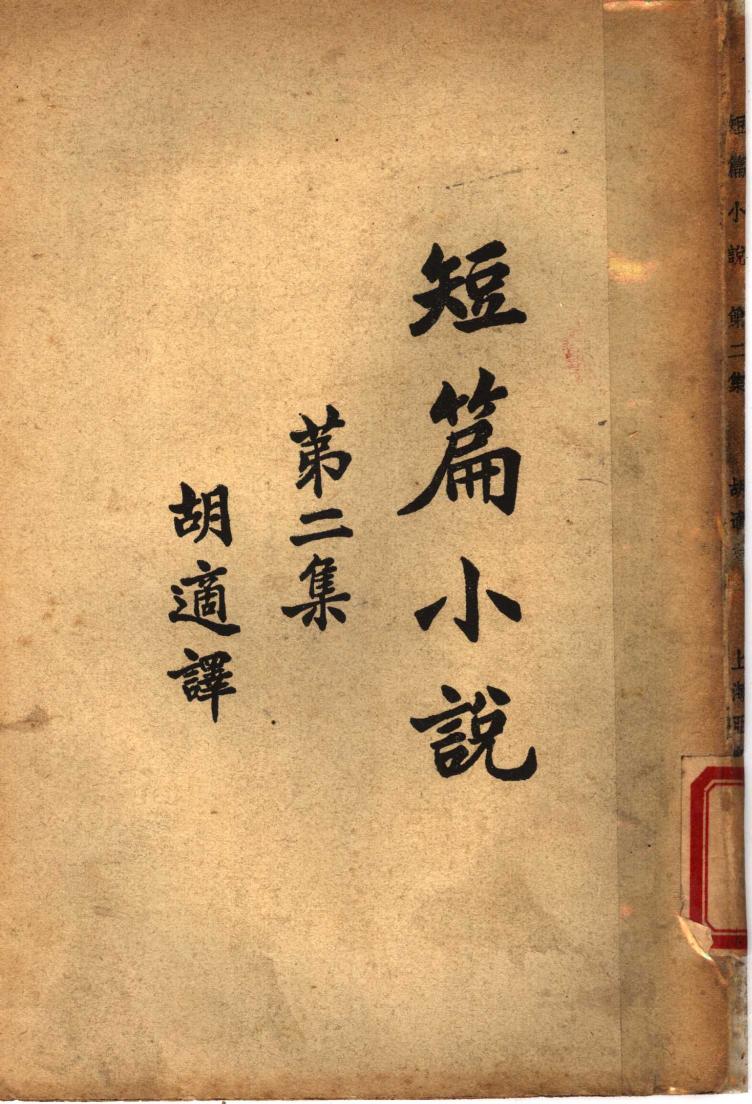 短篇小說
第二集
胡適譯
短篇小說 第二集 胡適 上海